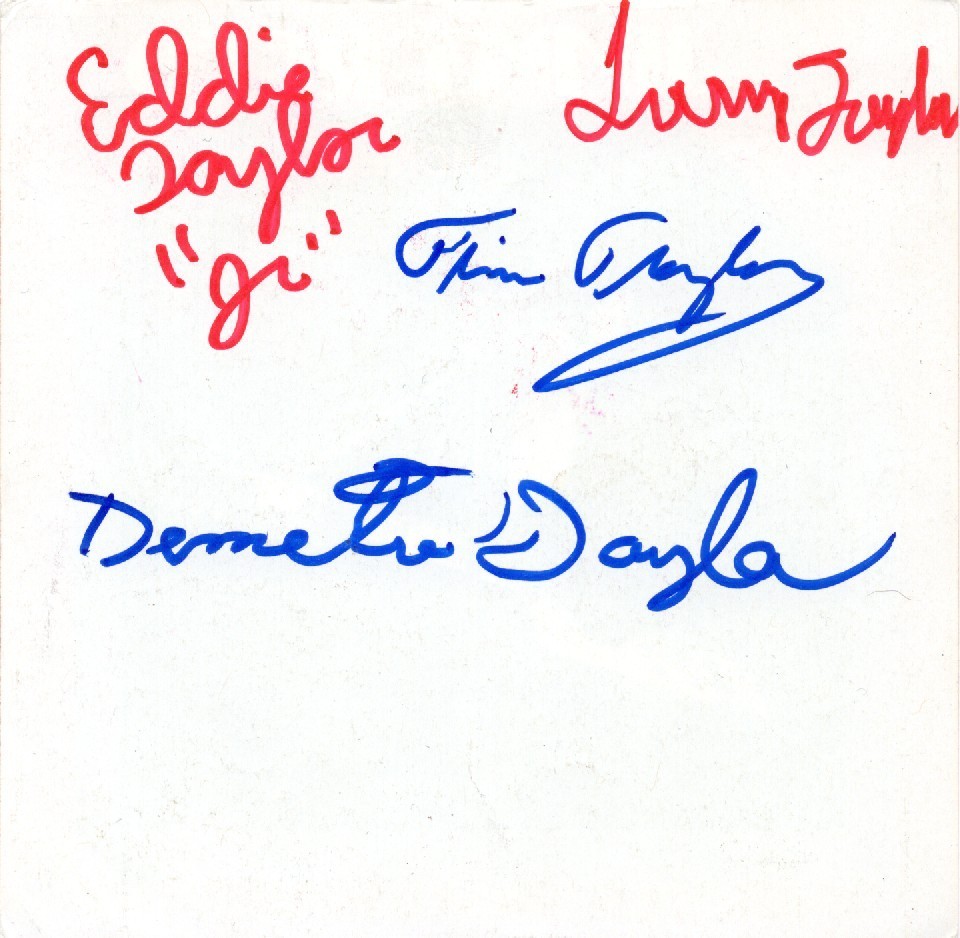 Eddie
Taylor
"Jr"
Larry Taylor
Tim Taylor
Demetra Taylor